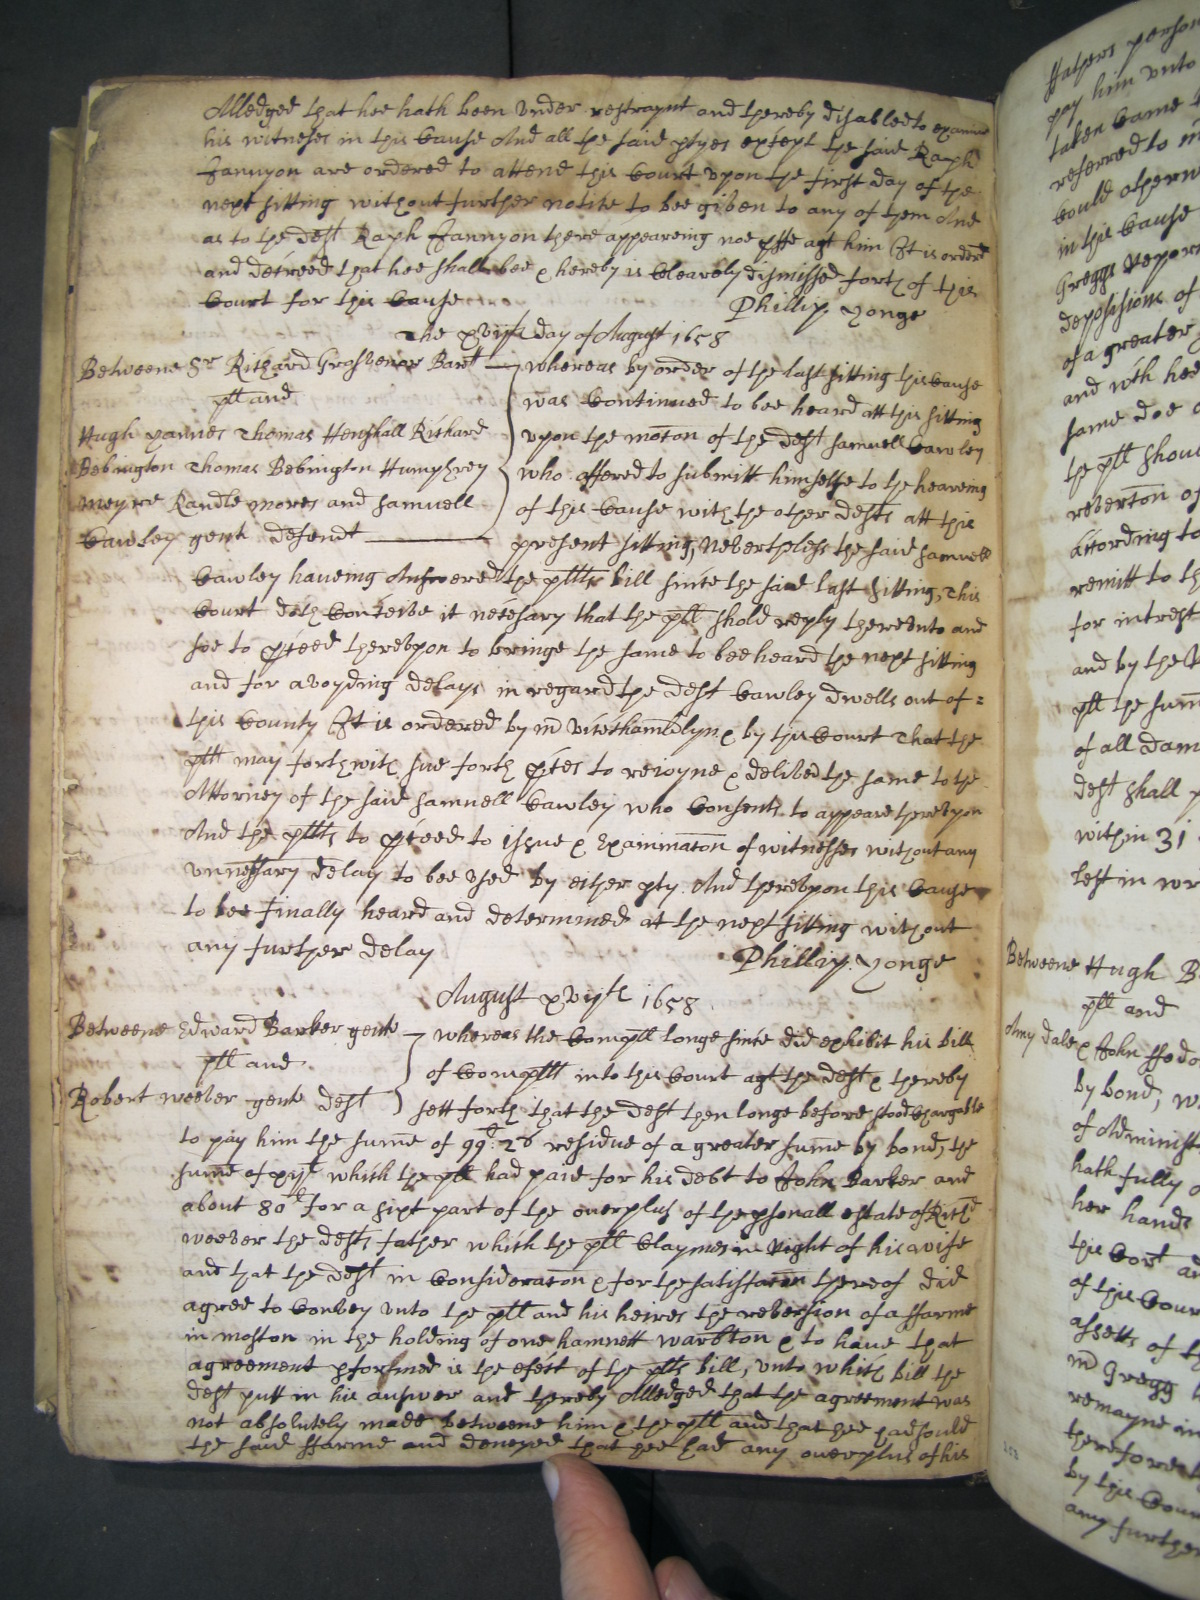 Alledged that hee hath been under restraynt and thereby disabled to examine
his witnesses in this Cause And all the said ptyes except the said Raph
Jannyon are ordered to attend this Court upon the first day of the
next sitting without further notice to bee given to any of them And
as to the deft Raph Jannyon there appeareing noe pffe agt him It is ordered
and decreed that hee shall bee & hereby is Clearely dismissed forth of this
Court for this Cause Phillip Yonge
The xvijth day of August 1658
Betweene Sr Richard Grosvenor Bart
pll and
Hugh yannes Thomas Henshall Richard
Bebington Thomas Bebington Humphrey
meyre Randle mores and Samuell
Cawley gent defendt
whereas by order of the last sitting this Cause
was Continued to bee heard att this sitting
upon the moton of the deft Samuell Cawley
who offered to submitt himselfe to the heareing
of this Cause with the other defts att this
present sitting, Nevertheless the said Samuell
Cawley haveing Answered the pllts bill since the said last sitting, This
Court doth Conceive it necesary that the pll shold reply thereunto and
soe to pceed thereupon to bringe the same to bee heard the next sitting
and for avoyding delays in regard the deft Cawley dwells out of =
this County It is ordered by mr vicechamblyn & by this Court That the
pllt may forthwith sue forth pces to rejoyne & deliver the same to the
Attorney of the said Samuell Cawley who Consents to appeare thereupon
And the pllts to pceed to issue & Examinaton of witnesses without any
unnessary delay to bee used by either pty And thereupon this Cause
to bee finally heard and determined at the next sitting without
any further delay Phillip Yonge
August xvijth 1658
Betweene Edward Barker gent
pll and
Robert weever gent deft
whereas the Compll longe since did exhibit his bill
of Complt into this Court agt the deft & thereby
sett forth that the deft then longe before stood Chargable
to pay him the sume of 99l: 2s residue of a greater sume by bond, the
sume of xijl which the pll had paid for his debt to John Barker and
about 80l for a sixt part of the overplus of the psonall estate of Richd
weever the defts father which the pll Claymes in right of his wife
and that the deft in Consideraton & for the satisfacon thereof did
agree to Convey unto the pll and his heires the reversion of a ffarme
in moston in the holding of one hamnett warbton & to have that
agreement pformed is the efect of the plts bill, unto which bill the
deft putt in his answer and thereby Alledged that the agreement was
not absolutely made betweene him & the pll and that hee had sould
the said ffarme and denyed that hee had any overplus of his
ffathers person
pay him unto
taken Came
referred to
Could otherw
in this Cause
Greggs repor
deposisions of
of a greater
and with hee
same doe
the pll shou
reverton of
According to
remitt to th
for intrest
and by the
pll the sum
of all dam
deft shall p
within 31
left in wr
Betweene Hugh B
pll and
Amy dale & John ffodo
by bond, w
of Administ
hath fully
her hands
this Cort an
of this Cour
assetts of th
mr Gregg
remayne in
therefore
by this Cour
any further